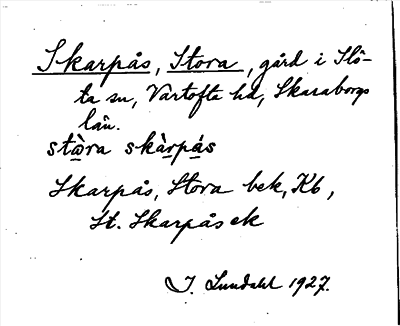 Skarpås, Stora, gård i Slö-
ta sn, Vartofta hd, Skaraborgs
län.
stⱥ̀ra skàrpás
Skarpås, Stora bek, Kb,
St. Skarpås ek
J. Lundahl 1927.